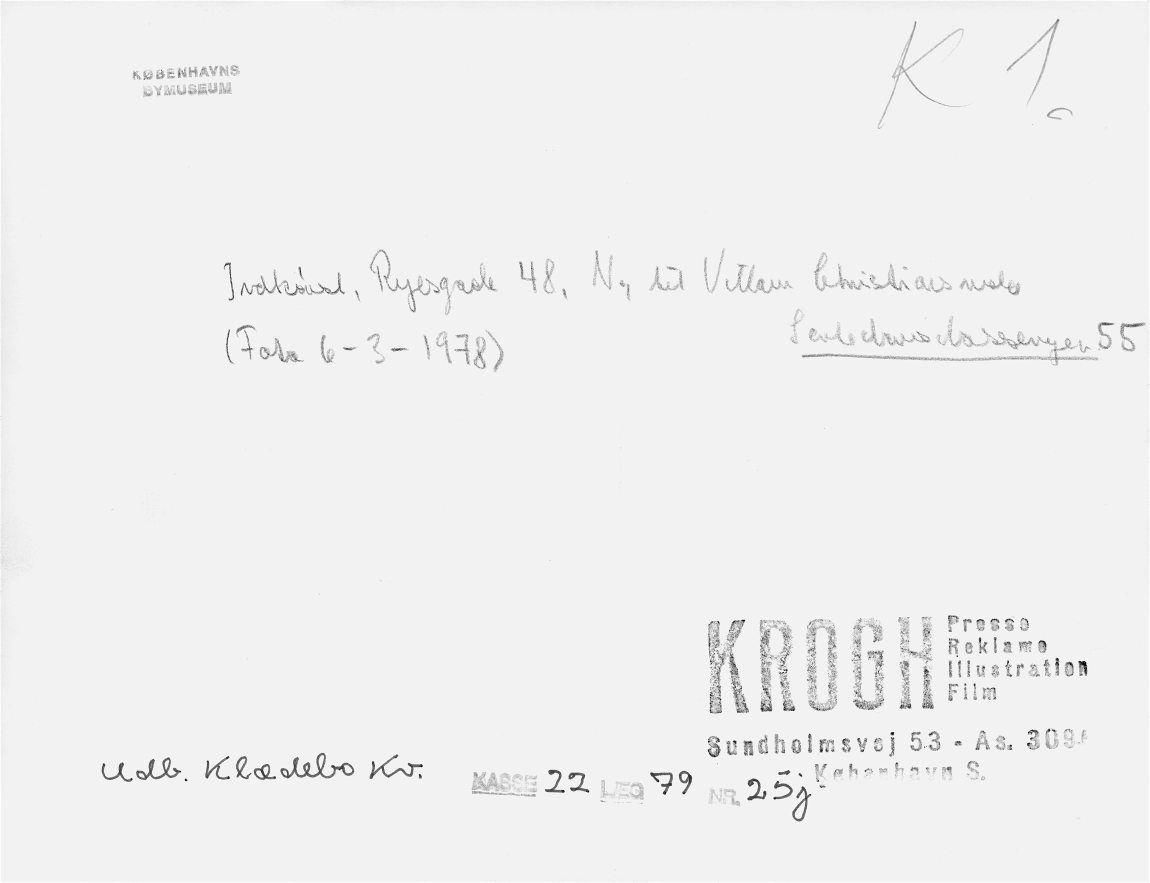 KØBENHAVNS
BYMUSEUM
K 1.
Indkøbst, Ryesgade 48, N., til
55
(Foto 6-3-1978)
KROGH
Presse
Reklame
Illustration
Film
Sundholmsvej 53 - As. 309
København S.
Udb. Klædebo Kv.
KASSE 22 LÆG 79 NR. 25j